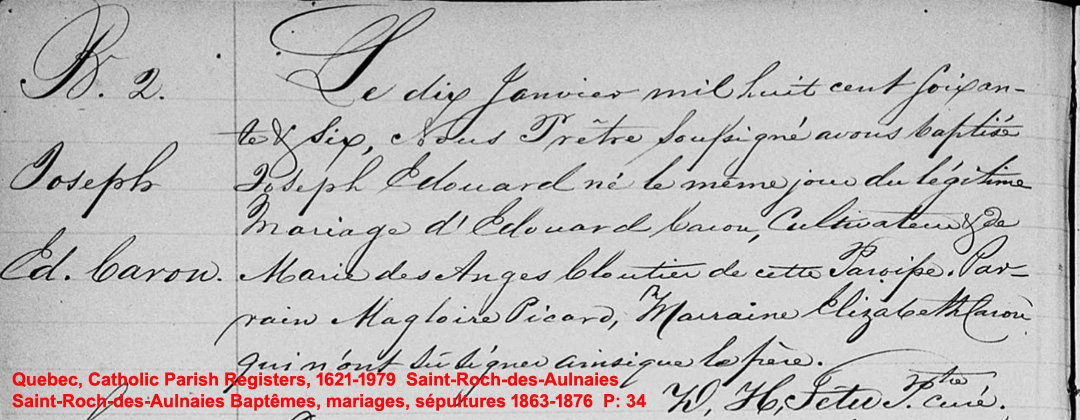 B. 2.
Joseph
Ed. Caron.
Le dix Janvier mil huit cent soixan-
te & six, Nous Prêtre soussigné avons baptisé
Joseph Edouard né le même jour du légitime
Mariage d'Edouard Caron, Cultivateur & de
Marie des Anges Cloutier de cette Paroisse. Par-
rain Magloire Picard, Marraine Elizabeth Caron
qui n'ont sû signer ainsi que le père.
D. H. Têtu Ptre curé.
Quebec, Catholic Parish Registers, 1621-1979 Saint-Roch-des-Aulnaies
Saint-Roch-des-Aulnaies Baptêmes, mariages, sépultures 1863-1876 P: 34